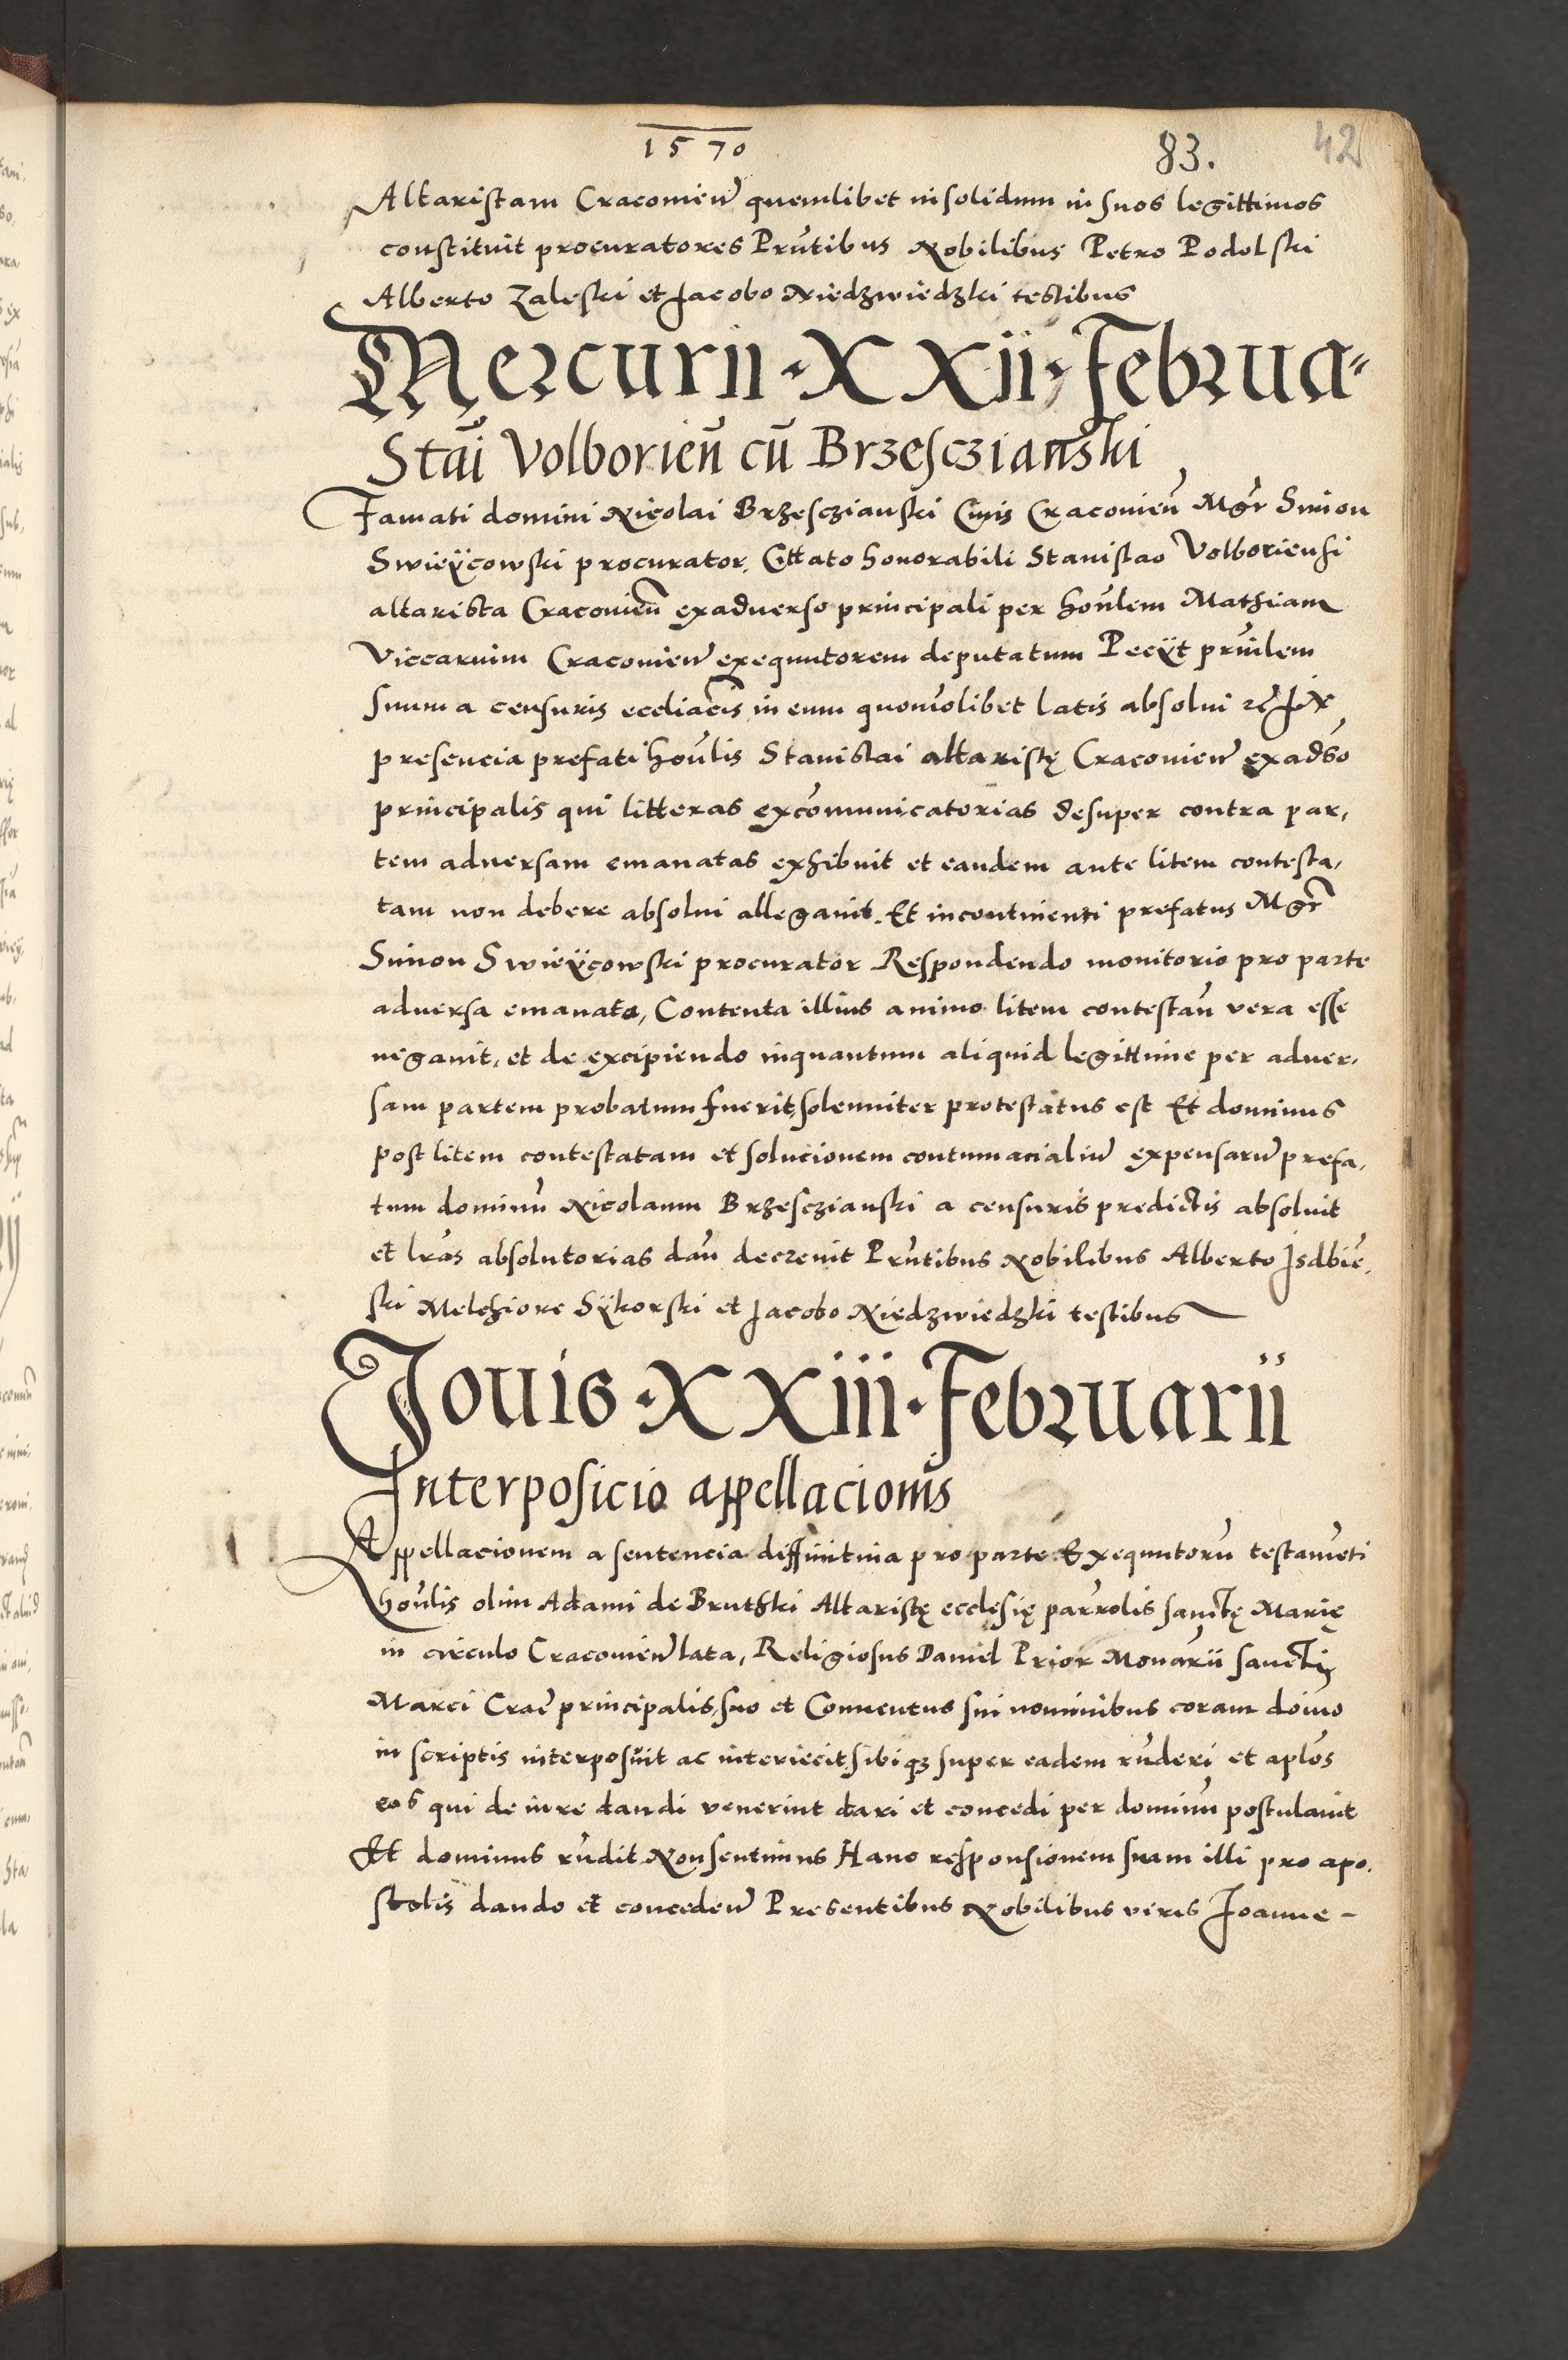 1570
83.
42
Altaristam Cracovien̄ quemlibet in solidum in suos legittimos
constituit procuratores Pn̄tibus Nobilibus Petro Podolski
Alberto Zaleski et Jacobo Niedzwiedzki testibus
Mercurii · XXii · Februa-
Stai̅ Volborien̄ cū Brzesczianski
Famati domini Nicolai Brzesczianski Civis Cracovien̄ Mgr̄ Simon
Swieÿcowski procurator, Cittato honorabili Stanislao Volboriensi
altarista Cracovien̄ exadverso principali per hon̄lem Mathiam
Viccarium Cracovien̄ exequutorem deputatum Pecÿt prin̄lem
suum a censuris eccliacis̄ in eum quomōlibet latis absolvi
presencia prefati hon̄lis Stanislai altaristę Cracovien̄ exadv̄so
principalis qui litteras excōmunicatorias desuper contra par,
tem adversam emanatas exhibuit et eandem ante litem contesta,
tam non debere absolvi allegavit. Et incontinenti prefatus Mgr̄
Simon Swieÿcowski procurator Respondendo monitorio pro parte
adversa emanato, Contenta illius animo litem contestan̄ vera esse
negavit, et de excipiendo inquantum aliquid legittime per adver,
sam partem probatum fuerit, solenniter protestatus est Et dominus
post litem contestatam et solucionem contumacialiū expensarū prefa,
tum dominū Nicolaum Brzesczianski a censuris predictis absolvit
et lrās absolutorias dan̄ decrevit Prn̄tibus Nobilibus Alberto Isdbiē,
ski Melchiore Sÿkorski et Jacobo Niedzwiedzki testibus
Jovis · XXiii · Februarii
Interposicio appellacionis
Appellacionem a sentencia diffinitiva pro parte Exequutorū testamēti
hon̄lis olim Adami de Bruthki Altaristę ecclesię parrōlis sanctę Marię
in circulo Cracovien̄ lata, Religiosus Daniel Prior Monar̄ii sancti
Marci Crac̄ principalis, suo et Conventus sui nominibus coram domō
in scriptis interposuit ac interiecit, sibiqʒ super eadem rn̄deri et aplōs
eos qui de iure dandi venerint dari et concedi per dominū postulavit
Et dominus rn̄dit Non sentimus Hanc responsionem suam illi pro apo,
stolis dando et conceden̄ Presentibus Nobilibus viris Joanne -